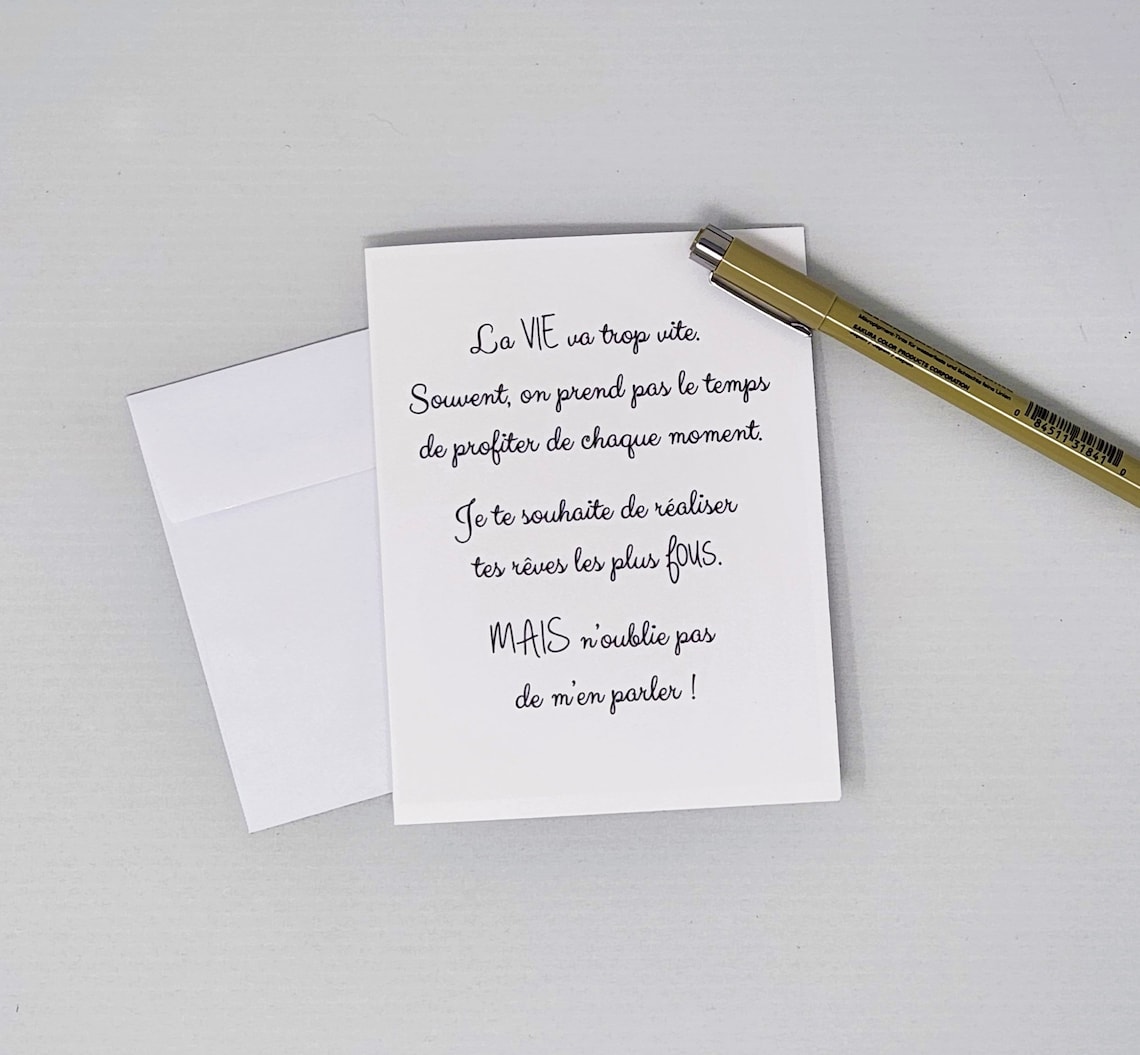 La VIE va trop vite.
Souvent, on prend pas le temps
de profiter de chaque moment.
Je te souhaite de réaliser
tes rêves les plus fous.
MAIS n'oublie pas
de m'en parler !
SAKURA COLOR PRODUCTS CORPORATION
0 84511 31841 0